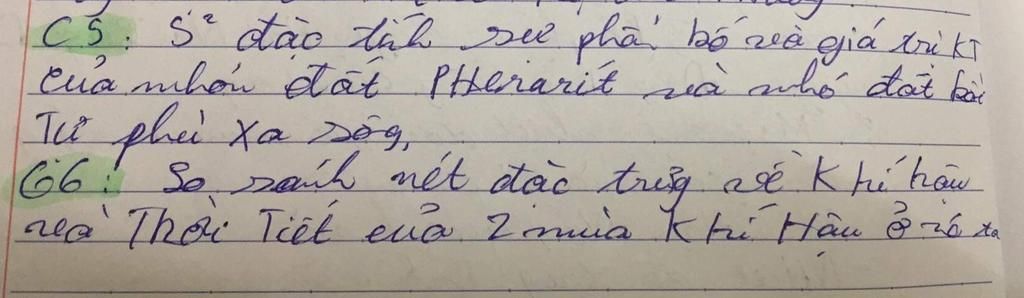 C5: S² đặc tíh sự phâ bố và giá trị KT
của nhóm đất PHerarit và nhó đất bồi
Tụ phù xa sôg,
C6: So sánh nét đặc trưg về Khí hậu
và Thời Tiết của 2 mùa Khí Hậu ở nc ta